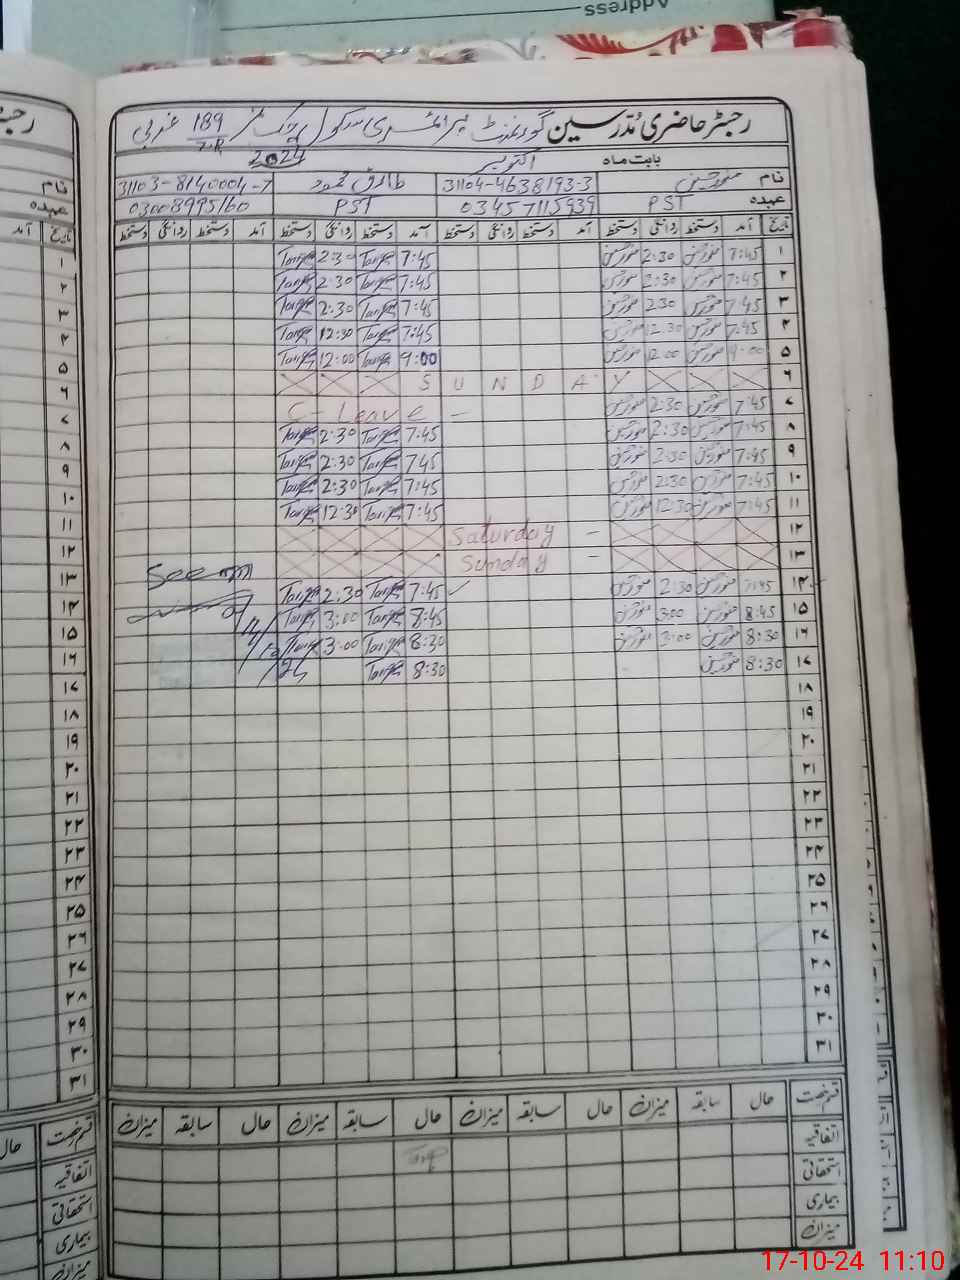 Address
رجسٹر حاضری مدرسین گورنمنٹ پرائمری سکول چک نمبر 189 غربی
7.R
بابت ماہ اکتوبر 2024
نام 31104-4638193-3 طارق محمود 31103-8140004-7
عہدہ PST 03457115939 PST 03008995160
تاریخ آمد دستخط روانگی دستخط آمد دستخط روانگی دستخط آمد دستخط روانگی دستخط آمد دستخط روانگی دستخط
۱ 7:45 2:30 7:45 Tariq 2:30 Tariq
۲ 7:45 2:30 7:45 Tariq 2:30 Tariq
۳ 7:45 2:30 7:45 Tariq 2:30 Tariq
۴ 7:45 12:30 7:45 Tariq 12:30 Tariq
۵ 9:00 12:00 9:00 Tariq 12:00 Tariq
۶ S U N D A Y
۷ 7:45 2:30 C - Leave -
۸ 7:45 2:30 7:45 Tariq 2:30 Tariq
۹ 7:45 2:30 7:45 Tariq 2:30 Tariq
۱۰ 7:45 2:30 7:45 Tariq 2:30 Tariq
۱۱ 7:45 12:30 7:45 Tariq 12:30 Tariq
۱۲ Saturday -
۱۳ Sunday -
۱۴ 7:45 2:30 7:45 Tariq 2:30 Tariq
Seen
۱۵ 8:45 3:00 8:45 Tariq 3:00 Tariq
۱۶ 8:30 3:00 8:30 Tariq 3:00 Tariq
۱۷ 8:30 8:30 Tariq
۱۸
۱۹
۲۰
۲۱
۲۲
۲۳
۲۴
۲۵
۲۶
۲۷
۲۸
۲۹
۳۰
۳۱
قسم رخصت حال سابقہ میزان حال سابقہ میزان حال سابقہ میزان حال سابقہ میزان
اتفاقیہ
استحقاقی
بیماری
میزان
رجسٹر
نام
عہدہ
تاریخ آمد
۱
۲
۳
۴
۵
۶
۷
۸
۹
۱۰
۱۱
۱۲
۱۳
۱۴
۱۵
۱۶
۱۷
۱۸
۱۹
۲۰
۲۱
۲۲
۲۳
۲۴
۲۵
۲۶
۲۷
۲۸
۲۹
۳۰
۳۱
قسم رخصت حال
اتفاقیہ
استحقاقی
بیماری
میزان
17-10-24 11:10